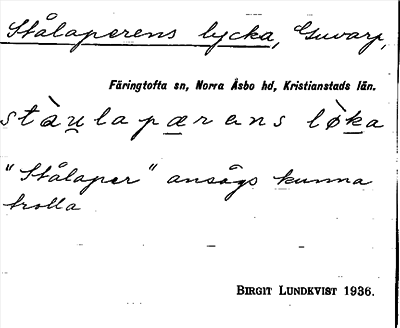 Stålaperens lycka, Guvarp,
Färingtofta sn, Norra Åsbo hd, Kristianstads län.
stàu̲lapæ̲rens lø̀ka
"Stålaper" ansågs kunna
trolla
BIRGIT LUNDKVIST 1936.